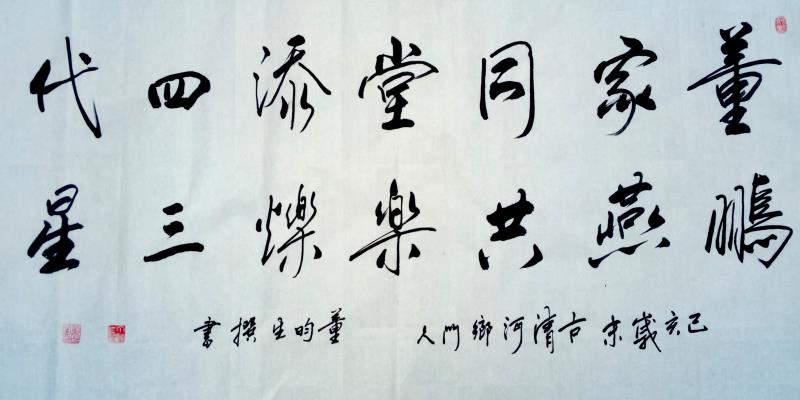 董家同堂添四代
鵬燕共樂爍三星
己亥歲末古清河鄉門人 董昀生撰書